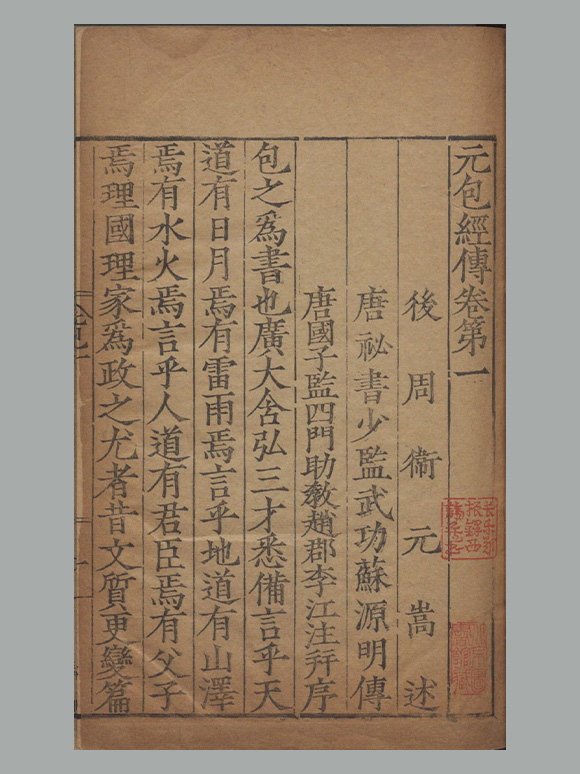 元包經傳卷第一
後周衞元嵩述
唐祕書少監武功蘇源明傳
唐國子監四門助敎趙郡李江注幷序
包之爲書也廣大含弘三才悉備言乎天
道有日月焉有雷雨焉言乎地道有山澤
焉有水火焉言乎人道有君臣焉有父子
焉理國理家爲政之尤者昔文質更變篇